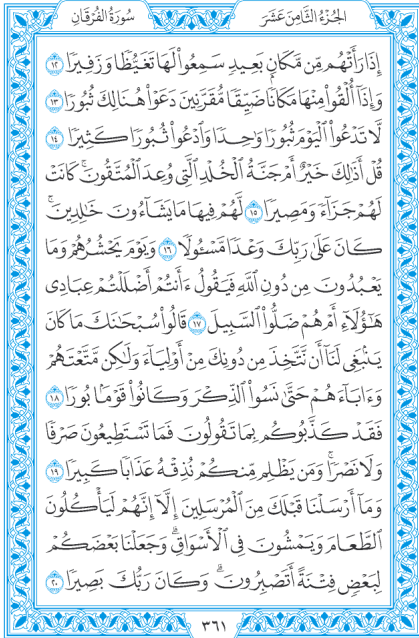 الجُزْءُ الثَّامِنَ عَشَرَ
سُورَةُ الفُرْقَانِ
إِذَا رَأَتْهُم مِّن مَّكَانٍۭ بَعِيدٖ سَمِعُواْ لَهَا تَغَيُّظٗا وَزَفِيرٗا ١٢
وَإِذَآ أُلْقُواْ مِنْهَا مَكَانٗا ضَيِّقٗا مُّقَرَّنِينَ دَعَوْاْ هُنَالِكَ ثُبُورٗا ١٣
لَّا تَدْعُواْ ٱلْيَوْمَ ثُبُورٗا وَٰحِدٗا وَٱدْعُواْ ثُبُورٗا كَثِيرٗا ١٤
قُلْ أَذَٰلِكَ خَيْرٌ أَمْ جَنَّةُ ٱلْخُلْدِ ٱلَّتِي وُعِدَ ٱلْمُتَّقُونَۚ كَانَتْ
لَهُمْ جَزَآءٗ وَمَصِيرٗا ١٥ لَّهُمْ فِيهَا مَا يَشَآءُونَ خَٰلِدِينَۚ
كَانَ عَلَىٰ رَبِّكَ وَعْدٗا مَّسْـُٔولٗا ١٦ وَيَوْمَ يَحْشُرُهُمْ وَمَا
يَعْبُدُونَ مِن دُونِ ٱللَّهِ فَيَقُولُ ءَأَنتُمْ أَضْلَلْتُمْ عِبَادِي
هَٰٓؤُلَآءِ أَمْ هُمْ ضَلُّواْ ٱلسَّبِيلَ ١٧ قَالُواْ سُبْحَٰنَكَ مَا كَانَ
يَنۢبَغِي لَنَآ أَن نَّتَّخِذَ مِن دُونِكَ مِنْ أَوْلِيَآءَ وَلَٰكِن مَّتَّعْتَهُمْ
وَءَابَآءَهُمْ حَتَّىٰ نَسُواْ ٱلذِّكْرَ وَكَانُواْ قَوْمَۢا بُورٗا ١٨
فَقَدْ كَذَّبُوكُم بِمَا تَقُولُونَ فَمَا تَسْتَطِيعُونَ صَرْفٗا
وَلَا نَصْرٗاۚ وَمَن يَظْلِم مِّنكُمْ نُذِقْهُ عَذَابٗا كَبِيرٗا ١٩
وَمَآ أَرْسَلْنَا قَبْلَكَ مِنَ ٱلْمُرْسَلِينَ إِلَّآ إِنَّهُمْ لَيَأْكُلُونَ
ٱلطَّعَامَ وَيَمْشُونَ فِي ٱلْأَسْوَاقِۗ وَجَعَلْنَا بَعْضَكُمْ
لِبَعْضٖ فِتْنَةً أَتَصْبِرُونَۗ وَكَانَ رَبُّكَ بَصِيرٗا ٢٠
٣٦١